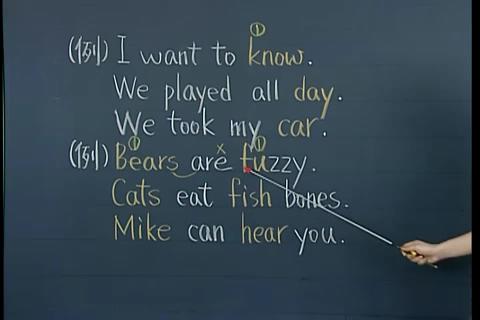 ①
(例) I want to know.
We played all day.
We took my car.
① × ①
(例) Bears are fuzzy.
Cats eat fish bones.
Mike can hear you.